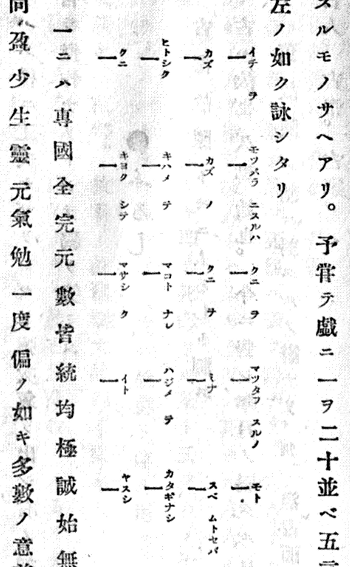 スルモノサヘアリ。予甞テ戲ニ一ヲ二十並ベ五
左ノ如ク詠シタリ
イチ ヲ モツパラ ニスルハ クニ ヲ マツタフ スルノ モト
一 一 一 一 一
カズ カズ ノ クニ ヲ ミナ スベ ムトセバ
一 一 一 一 一
ヒトシク キハメ テ マコト ナレ ハジメ テ カタギナシ
一 一 一 一 一
クニ キヨク シテ マサシ ク イト ヤスシ
一 一 一 一 一
一ニハ專國全完元數皆統均極誠始無
同盈少生靈元氣勉一度偏ノ如キ多數ノ意